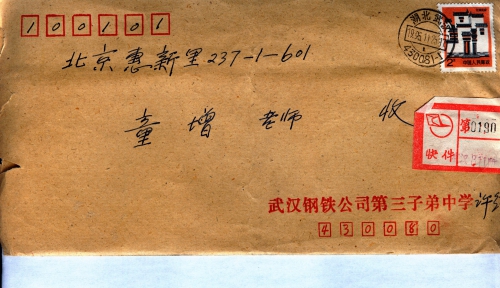 100101
北京惠新里237-1-601
童增 老师 收
湖北
430081
中国人民邮政
第0190
快件
武汉钢铁公司第三子弟中学 许
430080